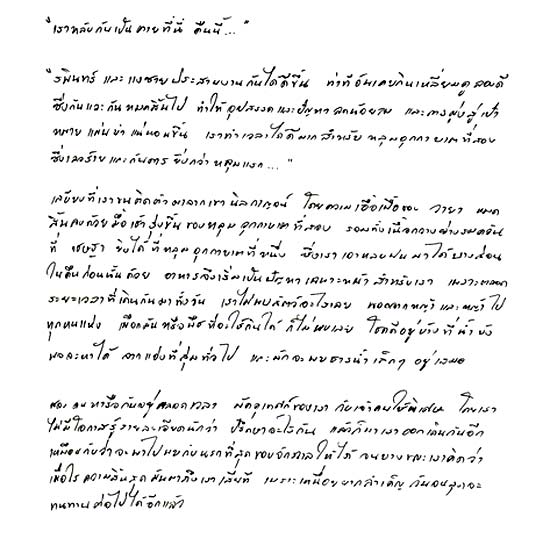 "เราหลับกันเป็นตายที่นี่ คืนนี้..."
"รพินทร์ และ แงซาย ประสานงานกันได้ดีขึ้น ท่าทีอันเคยกินเหลี่ยมดูลองดี
ซึ่งกันและกันหมดสิ้นไป ทำให้อุปสรรคและปัญหาลดน้อยลง และการมุ่งสู่เป้า
หมายแม่นยำแน่นอนขึ้น เราทำเวลาได้ดีมากสำหรับ หลุมอุกกาบาตที่สอง
ซึ่งเลวร้ายและกันดาร ยิ่งกว่าหลุมแรก..."
เสบียงที่เราขนติดตัวมาจากเขานิลกาญจน์ โดยความเอื้อเฟื้อของ วายา หมด
สิ้นลงด้วยมื้อเช้ารุ่งขึ้นของหลุมอุกกาบาตที่สอง รวมทั้งเนื้อกวางย่างรมควัน
ที่ เชษฐา ยิงได้ที่หลุมอุกกาบาตที่หนึ่ง ซึ่งเราเอาหลบฝนมาได้บางส่วน
ในคืนก่อนนั้นด้วย อาหารจึงเริ่มเป็นปัญหาเฉพาะหน้าสำหรับเรา เพราะตลอด
ระยะเวลาที่เดินกันมาทั้งวัน เราไม่พบสัตว์อะไรเลย นอกจากหญ้า และหญ้าไป
ทุกหนแห่ง เผือกมันหรือพืชที่จะใช้กินได้ ก็ไม่พบเลย โชคดีอยู่บ้างที่น้ำยัง
พอจะหาได้ จากแอ่งที่ลุ่มทั่วไป และมักจะพบธารน้ำเล็กๆ อยู่เสมอ
หารือกันอยู่ตลอดเวลา มัคคุเทศก์ของเรา กับเจ้าคนใช้พิเศษ โดยเรา
ไม่มีโอกาสรู้รายละเอียดนักว่า ปรึกษาอะไรกัน แล้วก็พาเราออกเดินกันอีก
เหมือนกับว่าจะพาไปพบกับนรกที่สุดของจักรวาลให้ได้ จนบางขณะเราคิดว่า
เมื่อไรความสิ้นสุดมันมาถึงเราเสียที เพราะเหนื่อยยากลำเค็ญกันจนสุดจะ
ทนทานต่อไปได้อีกแล้ว